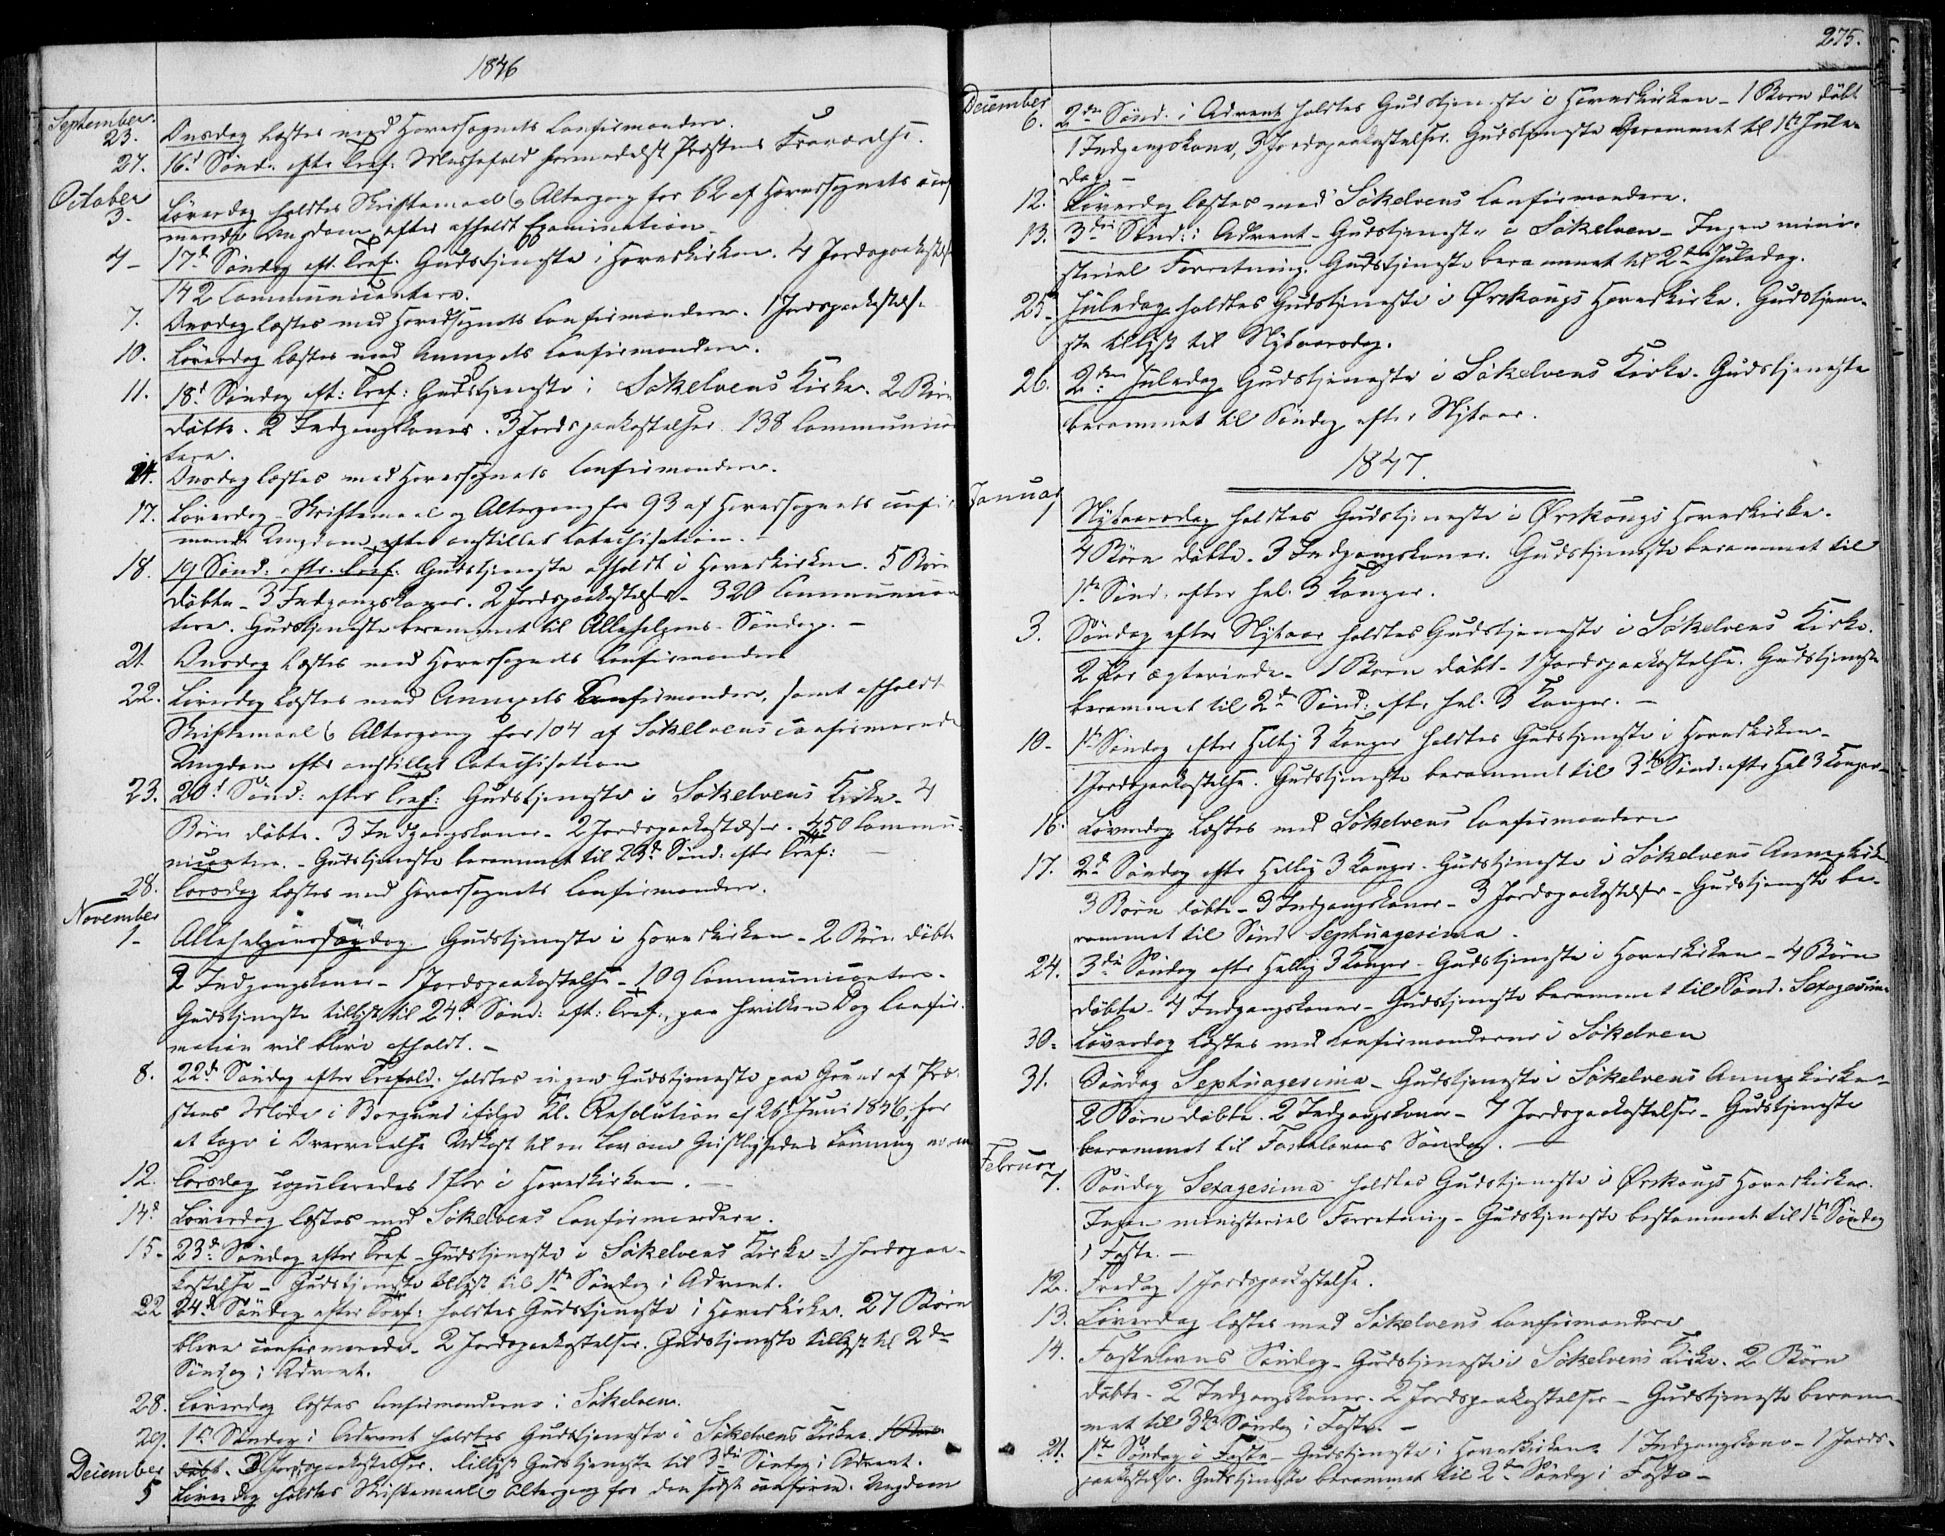 1846
September.
23. Onsdag læstes med Hovedsognets Confirmander.
27. 16d Sønd. efter Tref: Messefald formedelst Præstens Fraværelse.
October
3. Løverdag holdtes Skriftemaal og Altergang for 62 af Hovedsognets confir
merede Ungdom, efter afholdt Examination.
4 - 17d Søndag eft. Tref. Gudstjeneste i Hovedkirken. 4 Jordspaakastelser
142 Communicantere.
7. Onsdag læstes med Hovedsognets Confirmandere. 1 Jordspaakastelse
10. Løverdag læstes med Annexets Confirmandere.
11. 18d Søndag eft: Tref: Gudstjeneste i Søkelvens Kirke. 2 Børn
døbte. 2 Indgangskoner. 3 Jordspaakastelser. 138 Communican
tere.
14. Onsdag læstes med Hovedsognets Confirmandere.
17. Løverdag - Skriftemaal og Altergang for 93 af Hovedsognets confir
merede Ungdom, efter anstillet Catechisation.
18. 19 Sønd: eftr. Tref. Gudstjeneste afholdt i Hovedkirken. 5 Børn
døbte - 3 Indgangskoner. 2 Jordspaakastelser - 320 Communican
tere. Gudstjeneste berammet til Allehelgens Søndag. -
21 Onsdag læstes med Hovedsognets Confirmandere
22. Løverdag læstes med Annexets Confirmandere, samt afholdt
Skriftemaal og Altergang for 104 af Søkelvens confirmerede
Ungdom efter anstillet Catechisation
23. 20d Sønd: efter Tref: Gudstjeneste i Søkelvens Kirke. 4
Børn døbte. 3 Indgangskoner. 2 Jordspaakastelser. 450 Commu-
nicantere. - Gudstjeneste berammet til 23d Sønd: eftr Tref: -
28. Torsdag læstes med Hovedsognets Confirmandere.
November
1 - Allehelgenssøndag. Gudstjeneste i Hovedkirken - 2 Børn døbte
2 Indgangskoner - 1 Jordspaakastelse - 109 Communicantere.
Gudstjeneste tillyst til 24d Sønd: eft: Tref., paa hvilken Dag Confir-
mation vil blive afholdt. -
8. 22d Søndag efter Trefold. holdtes ingen Gudstjeneste paa Grund af Præ-
stens Møde i Borgund ifølge Kl. Resolution af 26d Juni 1846, for
at tage i Overveielse Udkast til en Lov om Geistlighedens Lønning
12. Torsdag copuleredes 1 Par i Hovedkirken. -
14d Løverdag læstes med Søkelvens Confirmandere.
15 - 23d Søndag efter Tref - Gudstjeneste i Søkelvens Kirke - 1 Jordspaa-
kastelse - Gudstjeneste tillyst til 1ste Søndag i Advent.
22 24d Søndag efter Tref: holdtes Gudstjeneste i Hovedkirken. 27 Børn
bleve confirmerede. 2 Jordspaakastelser. Gudstjeneste tillyst til 2den
Søndag i Advent.
28. Løverdag læstes Confirmanderne i Søkelven.
29. 1ste Søndag i Advent holdtes Gudstjeneste i Søkelvens Kirke. 1 Barn
døbt. 3 Jordspaakastelser. Tillyst Gudstjeneste til 3die Søndag i Advent.
December
5 Løverdag holdtes Skriftemaal og Altergang for den sidst confirm. Ungdom
275.
December
6. 2den Sønd. i Advent holdtes Gudstjeneste i Hovedkirken - 1 Barn døbt
1 Indgangskone, 3 Jordspaakastelser. Gudstjeneste berammet til 1ste Jule-
dag. -
12. Løverdag læstes med Søkelvens Confirmandere.
13. 3die Sønd: i Advent - Gudstjeneste i Søkelven - Ingen mini-
sterial Forretning. Gudstjeneste berammet til 2den Juledag.
25 - Juledag holdtes Gudstjeneste i Ørskougs Hovedkirke. Gudstjene-
ste tillyst til Nytaarsdag.
26. 2den Juledag Gudstjeneste i Søkelvens Kirke. Gudstjeneste
berammet til Søndag efter Nytaar.
1847.
Januar
1 Nytaarsdag holdtes Gudstjeneste i Ørskougs Hovedkirke.
4 Børn døbte. 3 Indgangskoner. Gudstjeneste berammet til
1ste Sønd. efter hel. 3 Konger.
3. Søndag efter Nytaar holdtes Gudstjeneste i Søkelvens Kirke.
2 Par ægteviede. 1 Barn døbt - 1 Jordspaakastelse. Gudstjeneste
berammet til 2d Sønd: eftr hel. 3 Konger. -
10 - 1ste Søndag efter Hellig 3 Konger holdtes Gudstjeneste i Hovedkirken -
1 Jordspaakastelse. Gudstjeneste berammet til 3die Sønd: efter Hel 3 Konger -
16. Løverdag læstes med Søkelvens Confirmandere
17. 2d Søndag efter Hellig 3 Konger. Gudstjeneste i Søkelvens Annexkirke
3 Børn døbte - 3 Indgangskoner - 3 Jordspaakastelser - Gudstjeneste be-
rammet til Sønd. Septuagesima.
24. 3die Søndag efter Hellig 3 Konger - Gudstjeneste i Hovedkirken - 4 Børn
døbte. 4 Indgangskoner - Gudstjeneste berammet til Sønd. Sexagesima
30 - Løverdag læstes med Confirmanderne i Søkelven
31. Søndag Septuagesima - Gudstjeneste i Søkelvens Annexkirke -
2 Børn døbte. 2 Indgangskoner - 7 Jordspaakastelser - Gudstjeneste
berammet til Fastelavns Søndag. -
Februar
7. Søndag Sexagesima holdtes Gudstjeneste i Ørskougs Hovedkirke.
Ingen ministerial Forretning - Gudstjeneste bestemmet til 1ste Søndag
i Faste. -
12. Fredag 1 Jordspaakastelse.
13. Løverdag læstes med Søkelvens Confirmandere
14. Fastelavns Søndag - Gudstjeneste i Søkelvens Kirke. 2 Børn
døbte. 2 Indgangskoner. 2 Jordspaakastelser - Gudstjeneste beram-
met til 3die Søndag i Faste. -
21. 1ste Søndag i Faste - Gudstjeneste i Hovedkirken. 1 Indgangskone - 1 Jords-
paakastelse. Gudstjeneste berammet til 2den Søndag i Faste -